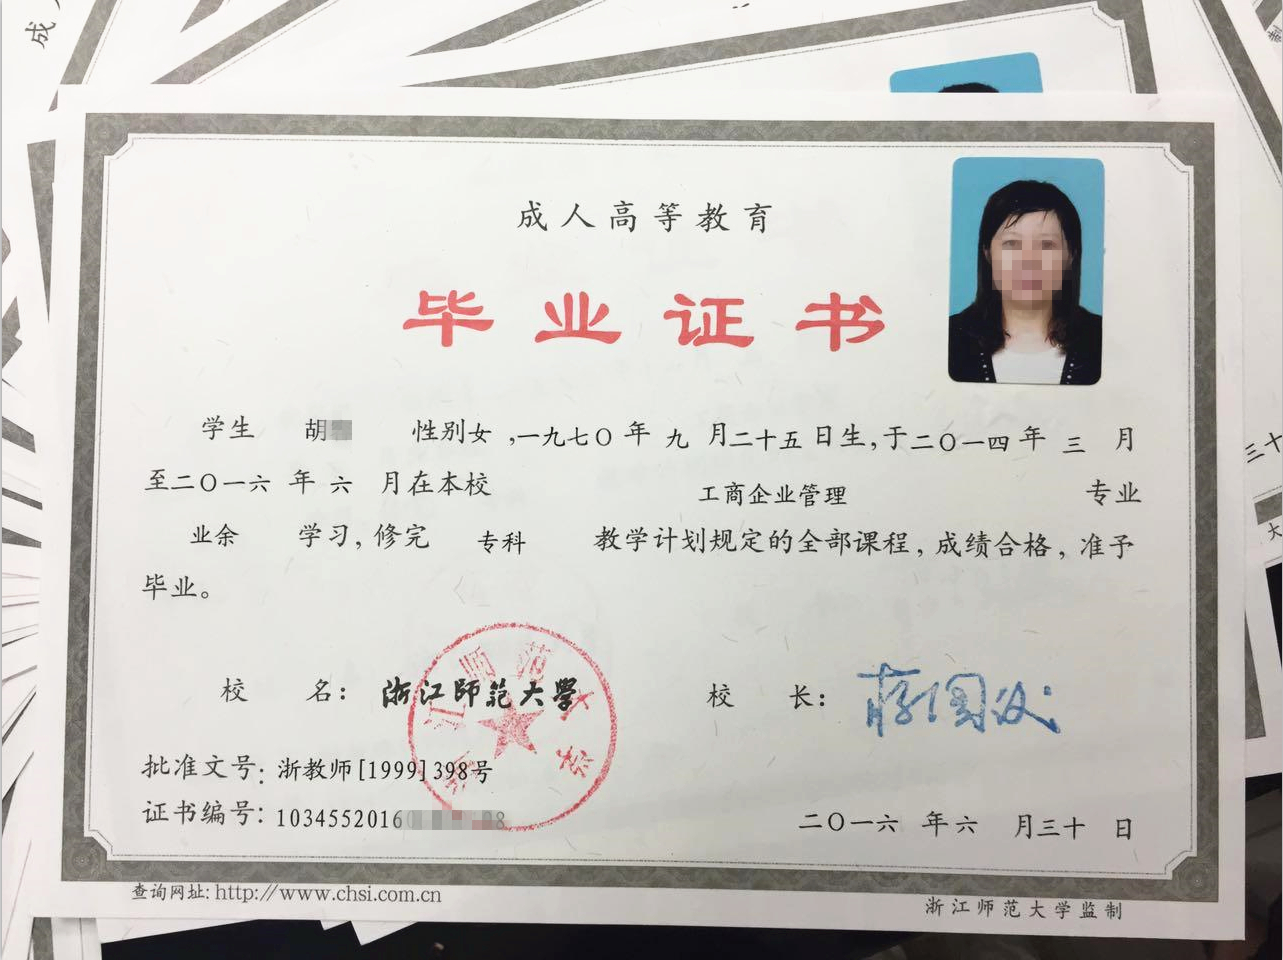 成人高等教育
毕业证书
学生 胡 性别女，一九七〇年九月二十五日生，于二〇一四年三月
至二〇一六年六月在本校 工商企业管理 专业
业余 学习，修完 专科 教学计划规定的全部课程，成绩合格，准予
毕业。
校 名：浙江师范大学 校 长：蒋国俊
批准文号：浙教师[1999]398号
证书编号：1034552016
二〇一六年六月三十日
查询网址：http://www.chsi.com.cn
浙江师范大学监制